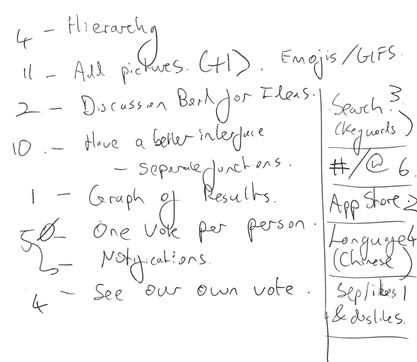 4 - Hierarchy
11 - Add pictures. (+1). Emojis/GIFs.
2 - Discussion for Ideas.
10 - Have a better interface
- separate functions.
1 - Graph of Results.
5 - One vote per person.
- Notifications.
4 - See our own vote.
Search 3
(Keywords)
#/@ 6.
App Store 2
Language 4
(Chinese)
Sep/likes 1
& dislikes.